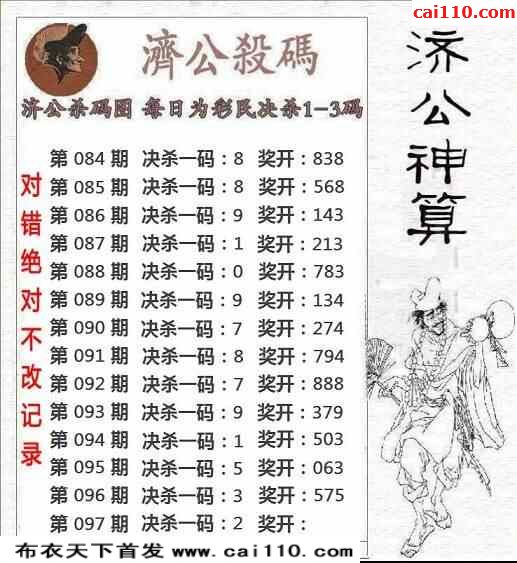 cai110.com
濟公殺碼
济公杀码图 每日为彩民决杀1-3码
第 084 期 决杀一码：8 奖开：838
第 085 期 决杀一码：8 奖开：568
第 086 期 决杀一码：9 奖开：143
第 087 期 决杀一码：1 奖开：213
第 088 期 决杀一码：0 奖开：783
第 089 期 决杀一码：9 奖开：134
第 090 期 决杀一码：7 奖开：274
第 091 期 决杀一码：8 奖开：794
第 092 期 决杀一码：7 奖开：888
第 093 期 决杀一码：9 奖开：379
第 094 期 决杀一码：1 奖开：503
第 095 期 决杀一码：5 奖开：063
第 096 期 决杀一码：3 奖开：575
第 097 期 决杀一码：2 奖开：
对错绝对不改记录
济公神算
布衣天下首发 www.cai110.com